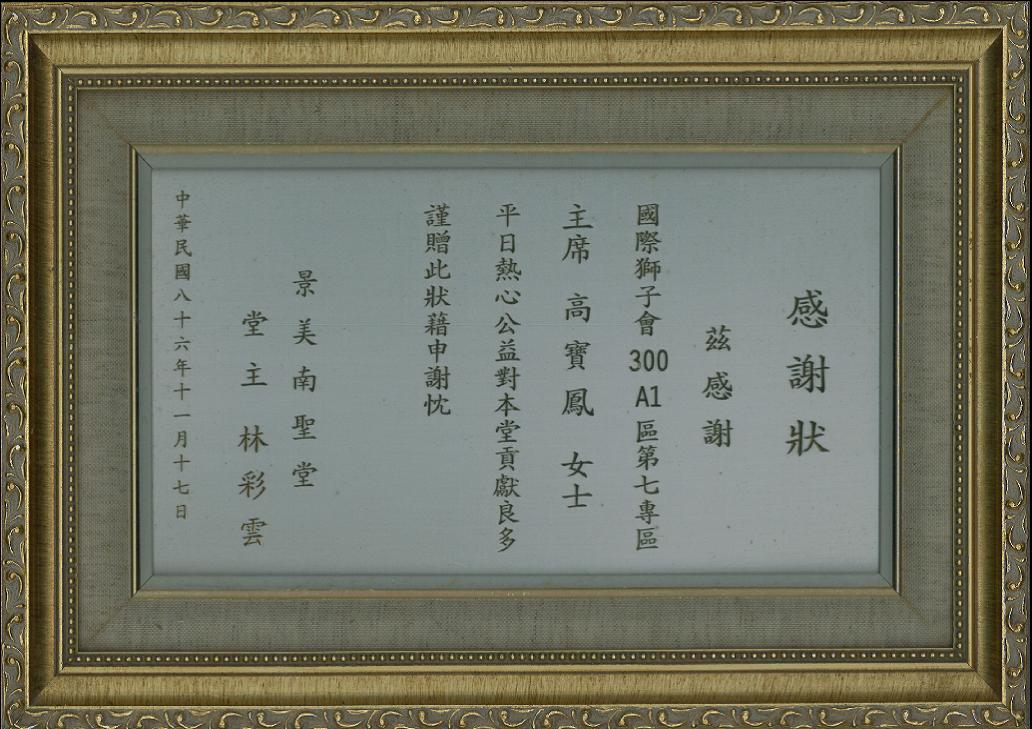 感謝狀
茲感謝
國際獅子會300A1區第七專區
主席 高寶鳳 女士
平日熱心公益對本堂貢獻良多
謹贈此狀藉申謝忱
景美南聖堂
堂主 林彩雲
中華民國八十六年十一月十七日